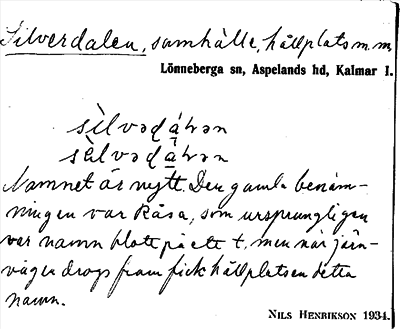 Silverdalen, samhälle, hållplats m.m.
Lönneberga sn, Aspelands hd, Kalmar l.
Namnet är nytt. Den gamla benäm-
ningen var Råsa, som ursprungligen
var namn blott på ett t. men när järn-
vägen drogs fram fick hållplatsen detta
namn.
NILS HENRIKSON 1934.